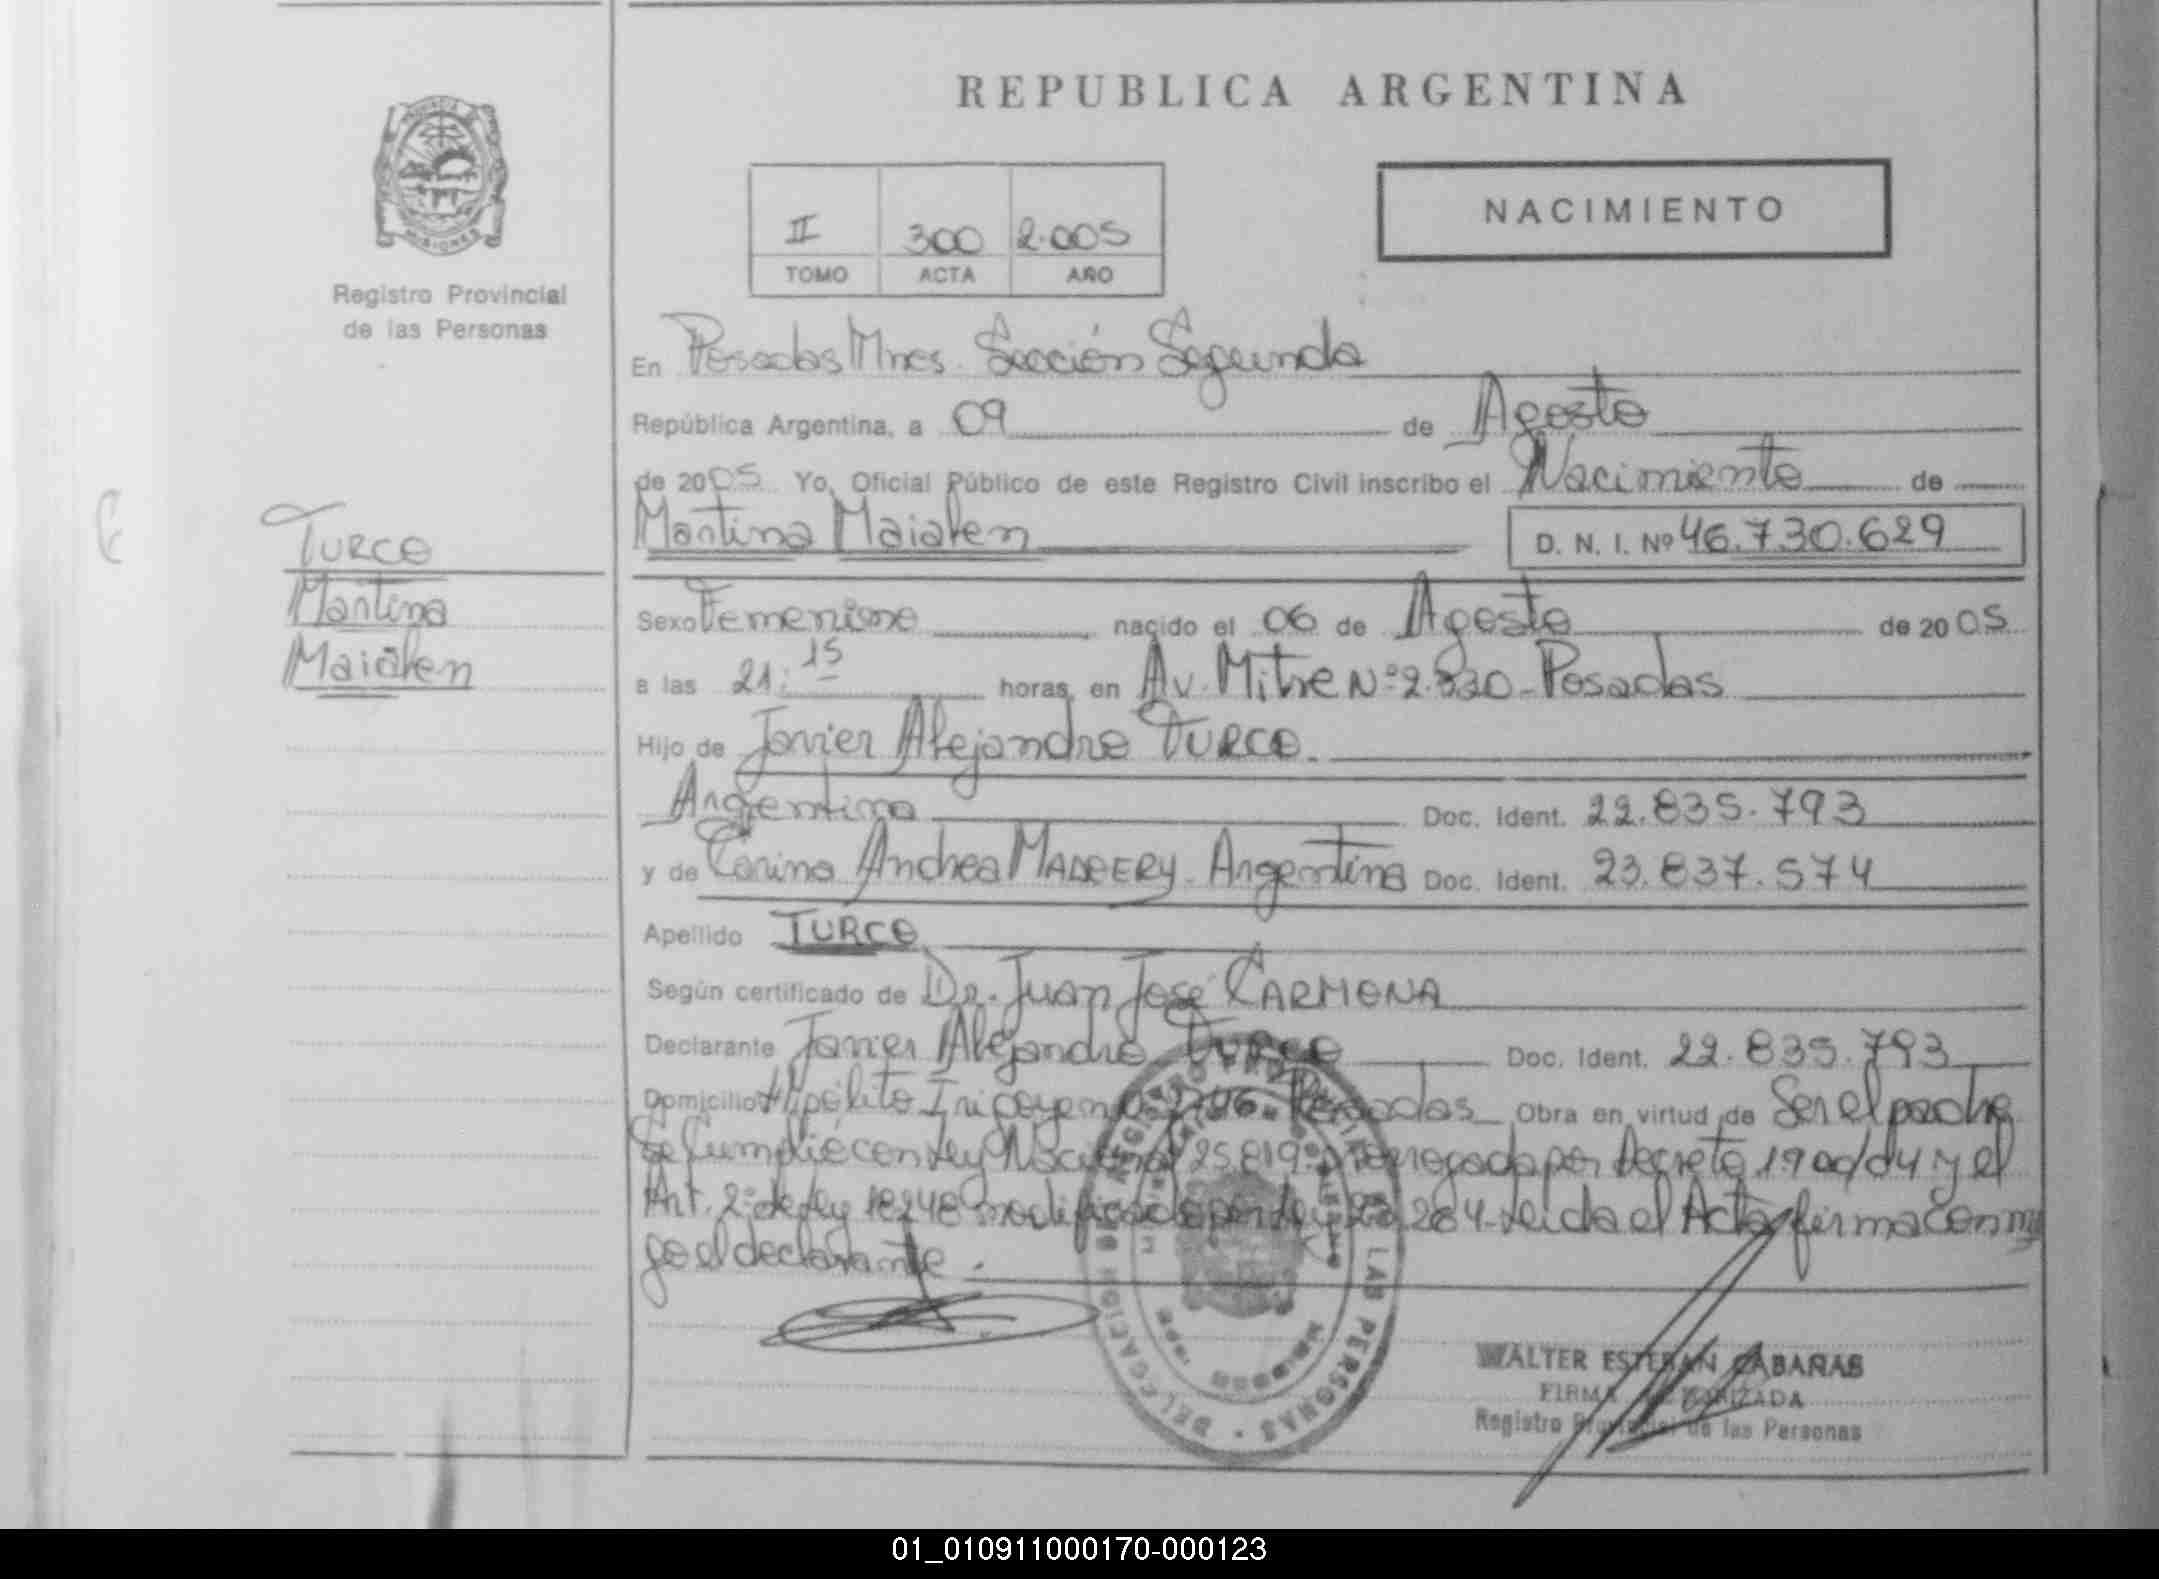 PROVINCIA
MISIONES
Registro Provincial
de las Personas
TURCO
Martina
Maialen
REPUBLICA ARGENTINA
NACIMIENTO
II 300 2.005
TOMO ACTA AÑO
En Posadas Mnes. Sección Segunda
República Argentina, a 09 de Agosto
de 2005 Yo, Oficial Público de este Registro Civil inscribo el Nacimiento de
Martina Maialen D. N. I. Nº 46.730.629
Sexo Femenino nacido el 06 de Agosto de 2005
a las 21:15 horas, en Av. Mitre Nº 2.330 - Posadas
Hijo de Javier Alejandro TURCO.
Argentina Doc. Ident. 22.835.793
y de Carina Andrea Argentina Doc. Ident. 23.837.574
Apellido TURCO
Según certificado de Dr. Juan José CARMONA
Declarante Javier Alejandro Turco Doc. Ident. 22.835.793
Domicilio Hipólito Irigoyen Posadas Obra en virtud de Ser el padre
Se Cumplió con Ley Nacional 25.819 prorrogada por Decreto y el
Art. 2º de Ley 18248 modificado por Ley Leida el Acta firma conmi
go el declarante.
DELEGACION
REGISTRO PROVINCIAL DE LAS PERSONAS
WALTER ESTEBAN CABAÑAS
FIRMA AUTORIZADA
Registro Provincial de las Personas
01_010911000170-000123